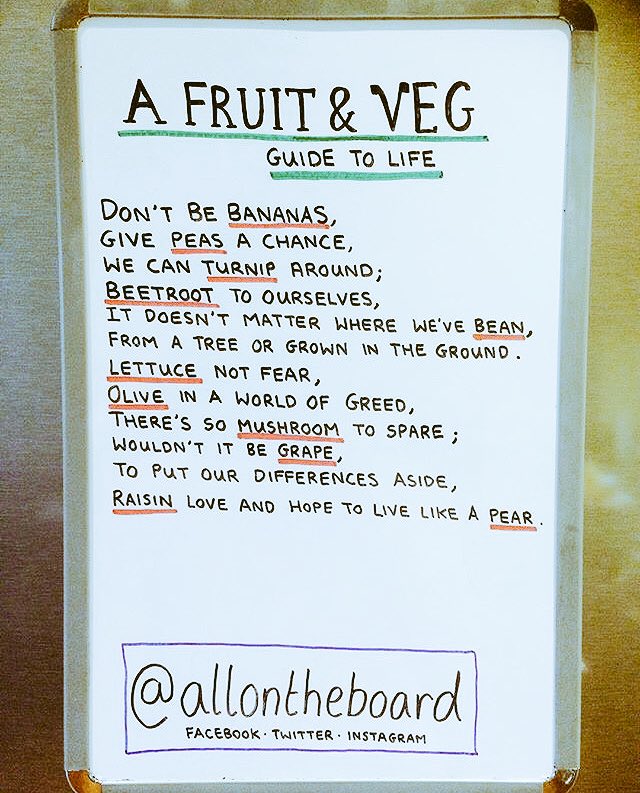 A FRUIT & VEG
GUIDE TO LIFE
DON'T BE BANANAS,
GIVE PEAS A CHANCE,
WE CAN TURNIP AROUND;
BEETROOT TO OURSELVES,
IT DOESN'T MATTER WHERE WE'VE BEAN,
FROM A TREE OR GROWN IN THE GROUND.
LETTUCE NOT FEAR,
OLIVE IN A WORLD OF GREED,
THERE'S SO MUSHROOM TO SPARE;
WOULDN'T IT BE GRAPE,
TO PUT OUR DIFFERENCES ASIDE,
RAISIN LOVE AND HOPE TO LIVE LIKE A PEAR.
@allontheboard
FACEBOOK · TWITTER · INSTAGRAM